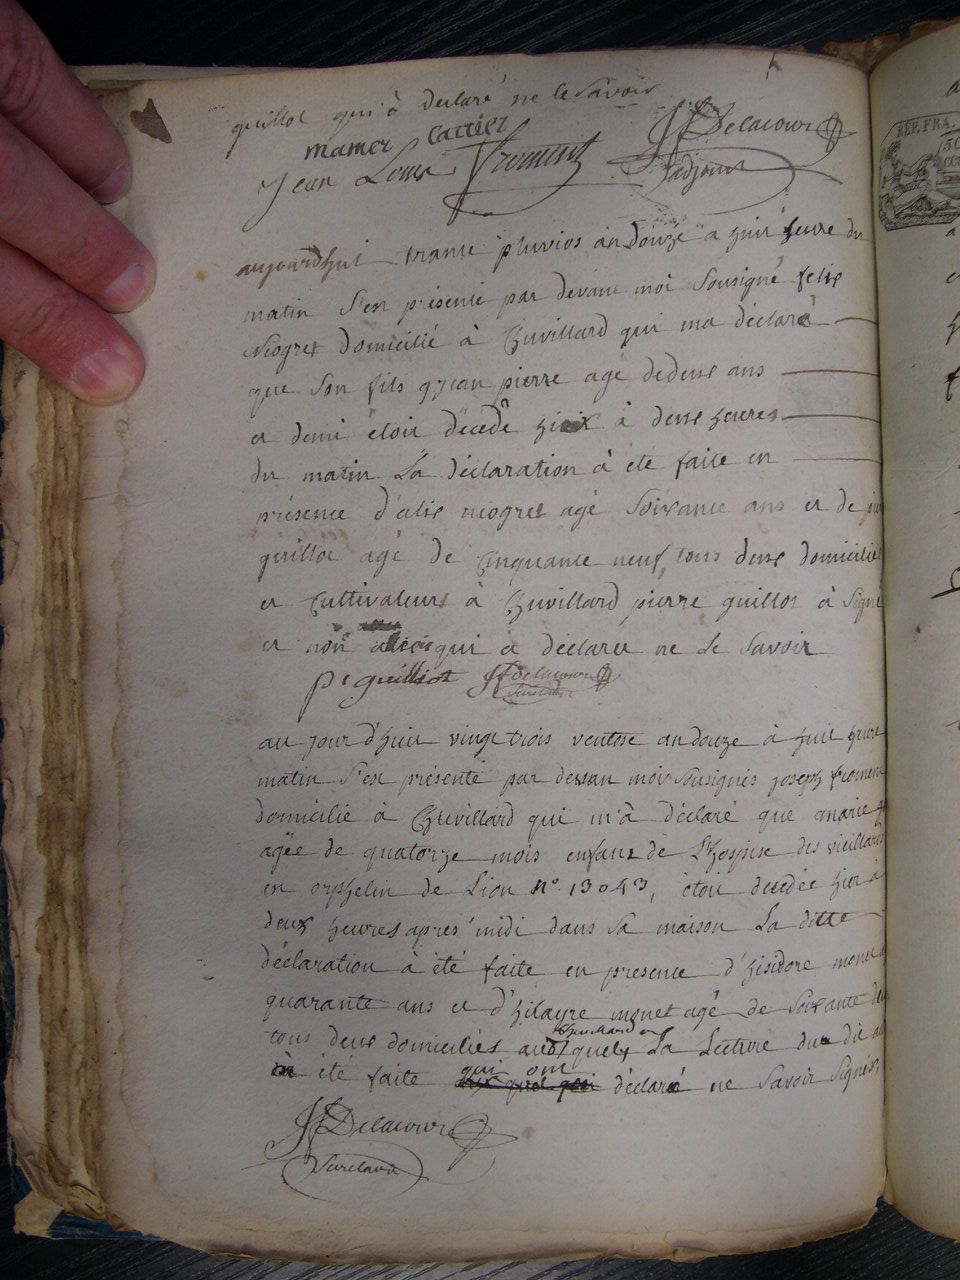 guillot qui à declaré ne le savoir
mamer Carrier
Jean Louis Froment JfDelacour
adjoint
aujourdhui trante pluvios an douze à huit heure du
matin s'est présenté par devant moi Sousigné felix
Niogret domicilié à Chuvillard qui ma déclaré
que son fils jean pierre agé dedeux ans
et demi étoit décédé hier à deux heures
du matin La déclaration à été faite en
présence d'alix niogret agé Soixante ans et de
guillot agé de Cinquante neuf, tous deux domiciliés
et Cultivateurs à Chuvillard, pierre guillot à Signé
et non alix qui à déclarer ne Le Savoir
pe guilliot JfDelacour
Secretaire
au jour d'hui vingt trois ventose an douze à huit heure
matin s'est présenté par devan moi Sousignés joseph froment
domicilié à Chuvillard qui m'à déclaré que marie
agée de quatorze mois enfant de L'hospise des vieillards
en orphelin de Lion N° 13043, étoit decedée hier à
deux heures après midi dans sa maison La ditte
déclaration à été faite en presence d'hisidore monet
quarante ans et d'hilayre monet agé de Soixante
Chuvillard
tous deux domiciliés auxquels La Lecture du dit
à été faite qui ont déclaré ne Savoir Signér
JfDelacour
Secretaire
REP. FRA.